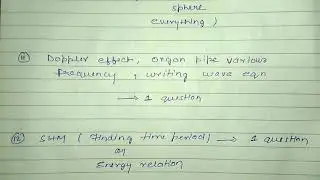 sphere
everything)
⑪ Doppler effect, organ pipe various
frequency, writing wave eqn
⟶ 1 question
⑫ SHM (finding time period) ⟶ 1 question
or
Energy relation